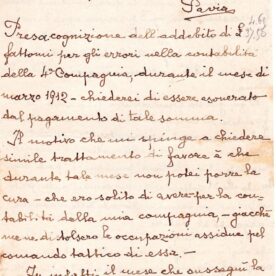 Pavia
Presa cognizione dell'addebito di £
fattomi per gli errori nella contabilità
della 4ª Compagnia, durante il mese di
marzo 1912 - chiederei di essere esonerato
dal pagamento di tale somma.
Il motivo che mi spinge a chiedere
simile trattamento di favore è che
durante tale mese non potei porre la
cura - che ero solito di avere per la con-
tabilità della mia compagnia, - giacchè
me ne distolsero le occupazioni assidue pel
comando tattico di essa, -
Infatti il mese che susseguì la